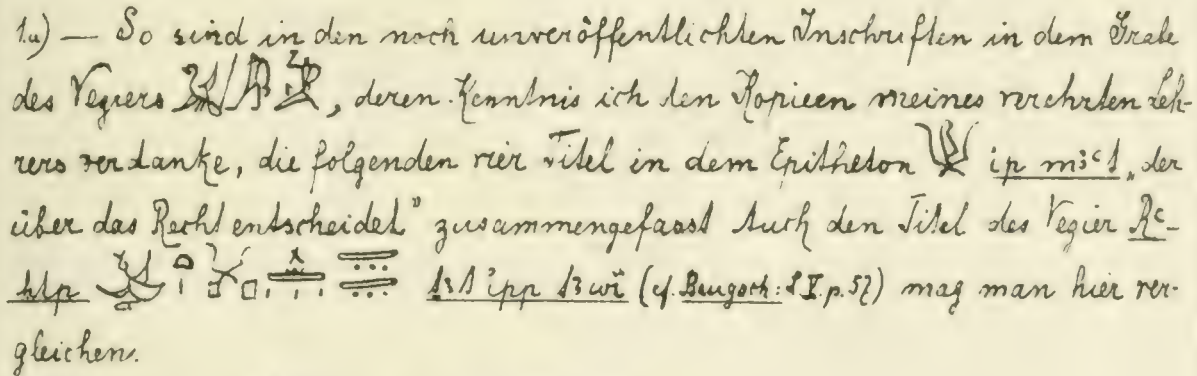 1a) — So sind in den noch unveröffentlichten Inschriften in dem Grabe
des Veziers , deren Kenntnis ich den Kopieen meines verehrten Leh-
rers verdanke, die folgenden vier Titel in dem Epitheton ip mꜣꜥt „der
über das Recht entscheidet" zusammengefasst Auch den Titel des Vezier Rꜥ-
ḥtp (cf. Brugsch: p. 57) mag man hier ver-
gleichen.